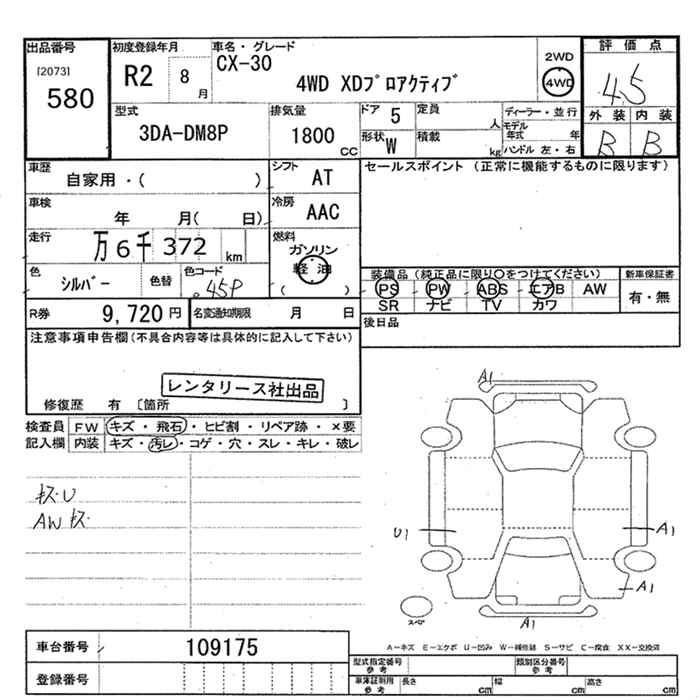 出品番号
[2073]
580
初度登録年月
R2 8 月
車名・グレード
CX-30
4WD XDプロアクティブ
2WD
4WD
評価点
4.5
外装 内装
B B
型式
3DA-DM8P
排気量
1800 CC
ドア 5
定員 人
形状 W
積載 kg
ディーラー・並行
モデル年式 年
ハンドル 左・右
車歴
自家用・( )
シフト
AT
セールスポイント (正常に機能するものに限ります)
車検
年 月( 日)
冷房
AAC
走行
万 6千 372 km
燃料
ガソリン
軽油
( )
色
シルバー
色替
色コード
45P
装備品 (純正品に限り○をつけてください)
PS PW ABS エアB AW
SR ナビ TV カワ
新車保証書
有・無
R券 9,720 円
名変通知期限 月 日
後日品
注意事項申告欄 (不具合内容等は具体的に記入して下さい)
レンタリース社出品
修復歴 有 〔箇所 〕
検査員記入欄
FW キズ・飛石・ヒビ割・リペア跡・×要
内装 キズ・汚レ・コゲ・穴・スレ・キレ・破レ
キズ U
AW キズ
A1
U1
A1
A1
A1
スペア
A-キズ E-エクボ U-凹み W-補修跡 S-サビ C-腐食 XX-交換済
車台番号 109175
登録番号
型式指定番号 参考
類別区分番号 参考
車庫証明用 参考
長さ cm 幅 cm 高さ cm